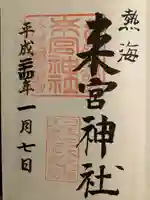 熱海
来宮神社
平成二十四年一月七日
来宮神社